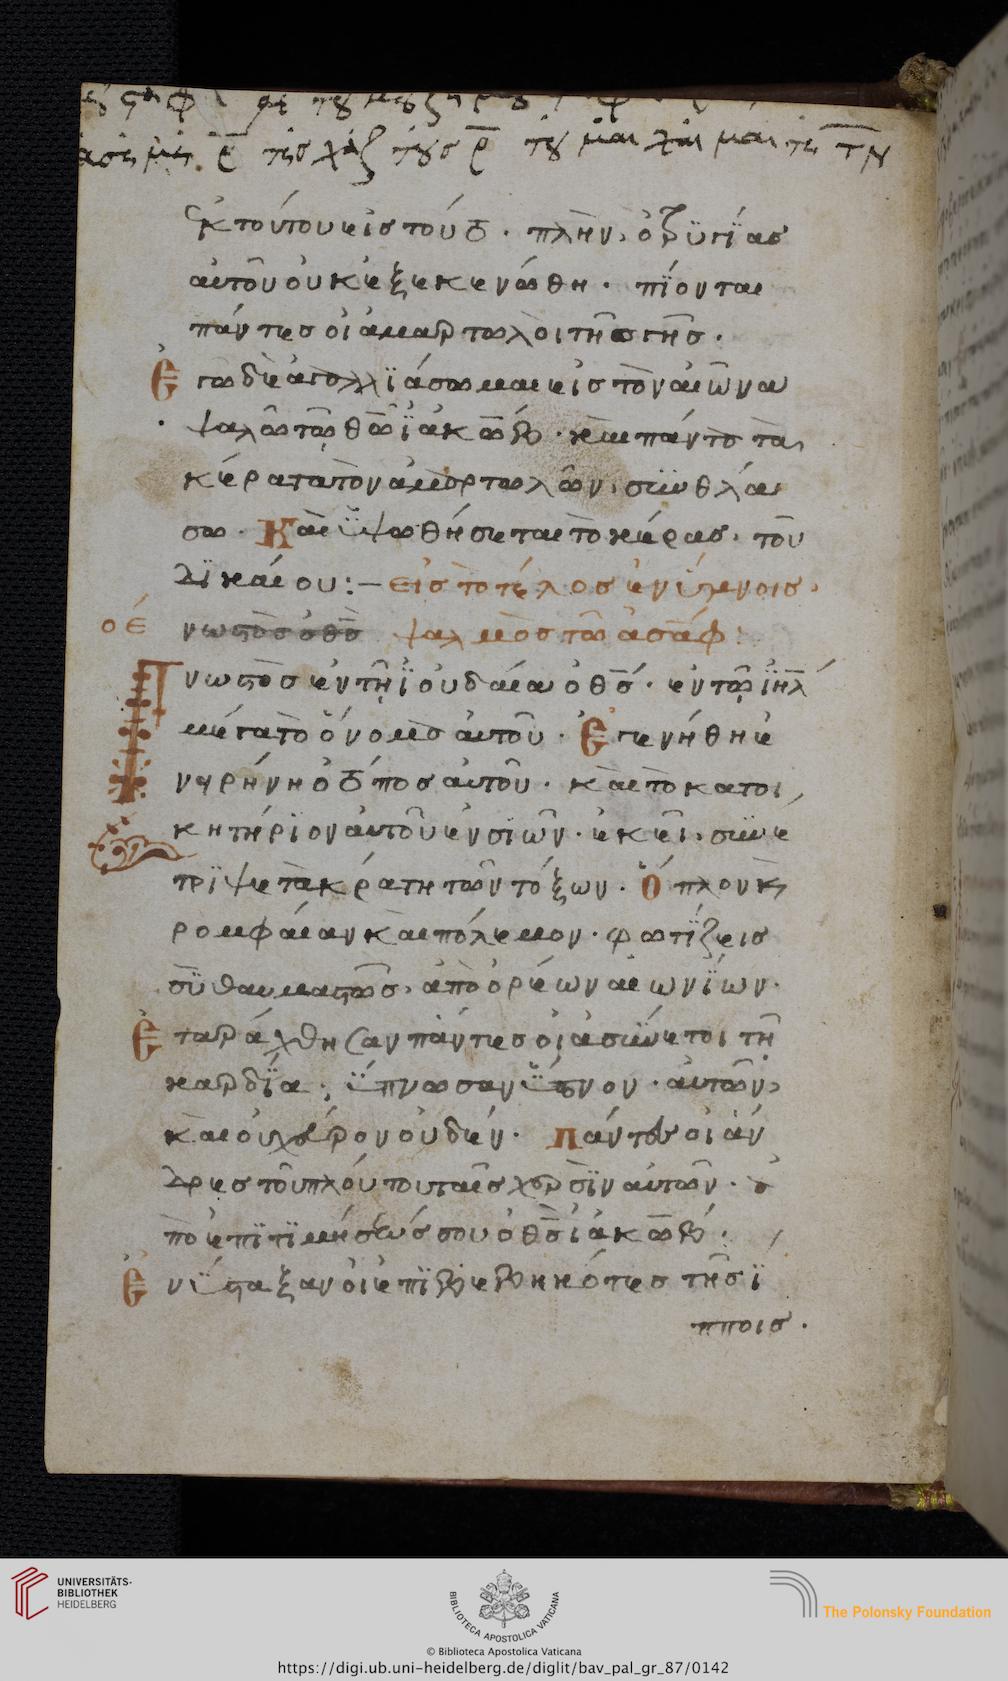 ἐκ τούτου εἰς τοῦτο · πλὴν ὁ τρϋγίας
αὐτοῦ οὐκ ἐξεκενώθη · πίονται
πάντες οἱ ἁμαρτωλοὶ τῆς γῆς ·
Ἐγὼ δὲ ἀγαλλϊάσομαι εἰς τὸν αἰῶνα
ψαλῶ τῷ θῶ ϊακώβ · καὶ πάντα τὰ
κέρατα τῶν ἁμαρτωλῶν, συνθλά
σω · Καὶ ϋψωθήσεται τὸ κέρας, τοῦ
δϊκαίου :– εἰς τὸ τέλος ἐν ὕμνοις,
οέ ψαλμὸς τῶ ἀσάφ :
Γνωστὸς ἐν τῇ ϊουδαία ὁ θς · ἐν τῷ ϊηλ
μέγα τὸ ὄνομα αὐτοῦ · Ἐγενήθη ἐ
ν εἰρήνη ὁ τόπος αὐτοῦ · καὶ τὸ κατοι
κητήρϊον αὐτοῦ ἐν σϊών · ἐκεῖ, συνέ
τρϊψε τὰ κράτη τῶν τόξων · Ὅπλον κ
ρομφαίαν καὶ πόλεμον · φωτίζεις
σϋ θαυμαστῶς, ἀπὸ ὀρέων αἰωνίων ·
Ἐταράχθησαν πάντες οἱ ἀσύνετοι τῇ
καρδϊα · ϋπνωσαν ϋπνον · αὐτῶν,
καὶ οὐχ εὗρον οὐδέν · Πάντες οἱ ἄν
δρες τοῦ πλούτου ταῖς χερσὶν αὐτῶν · ἀ
πὸ ἐπϊτϊμήσεώς σου ὁ θς ϊακώβ ·
Ἐνϋσταξαν οἱ ἐπϊβεβηκότες τῆς ϊ
πποις ·
UNIVERSITÄTS-
BIBLIOTHEK
HEIDELBERG
BIBLIOTECA APOSTOLICA VATICANA
The Polonsky Foundation
© Biblioteca Apostolica Vaticana
https://digi.ub.uni-heidelberg.de/diglit/bav_pal_gr_87/0142